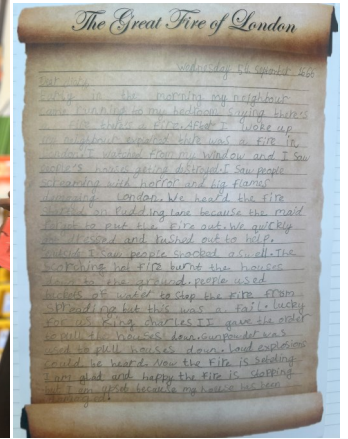 The Great Fire of London
Wednesday 5th September 1666
Early in the morning my neighbour
came running to my bedroom saying theres
a fire. After I woke up
my neighbour there was a fire in
I watched from my window and I saw
houses getting distroyed. I saw people
screaming with horror and big flames
London. We heard the fire
started on Pudding lane because the maid
forgot to put the fire out. We quickly
got dressed and rushed out to help.
I saw people shocked aswell. The
scorching hot fire burnt the houses
down to the ground. people used
buckets of water to stop the fire from
spreading but this was a fail. lucky
for us King charles II gave the order
to pull the houses down. Gunpowder was
used to pull houses down. Loud explosions
could be heard. Now the fire is
I am glad and happy the fire is stopping
but I am upset because my house has been